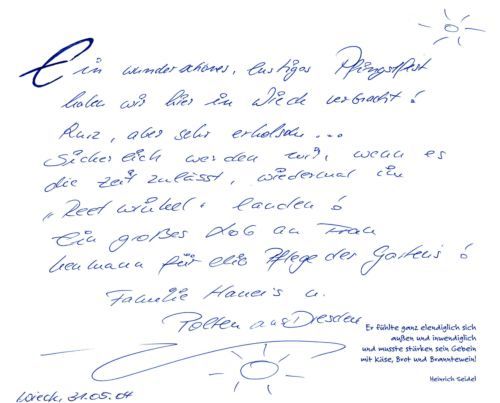 Ein wunderschönes, lustiges Pfingstfest
haben wir hier in Wieck verbracht!
Kurz, aber sehr erholsam...
Sicherlich werden wir, wenn es
die Zeit zulässt, wiedermal im
„Reetwinkel" landen!
Ein großes Lob an Frau
für die Pflege des Gartens!
Familie u.
aus Dresden
Er fühlte ganz elendiglich sich
außen und inwendiglich
und musste stärken sein Gebein
mit Käse, Brot und Branntewein!
Heinrich Seidel
Wieck, 31.05.04